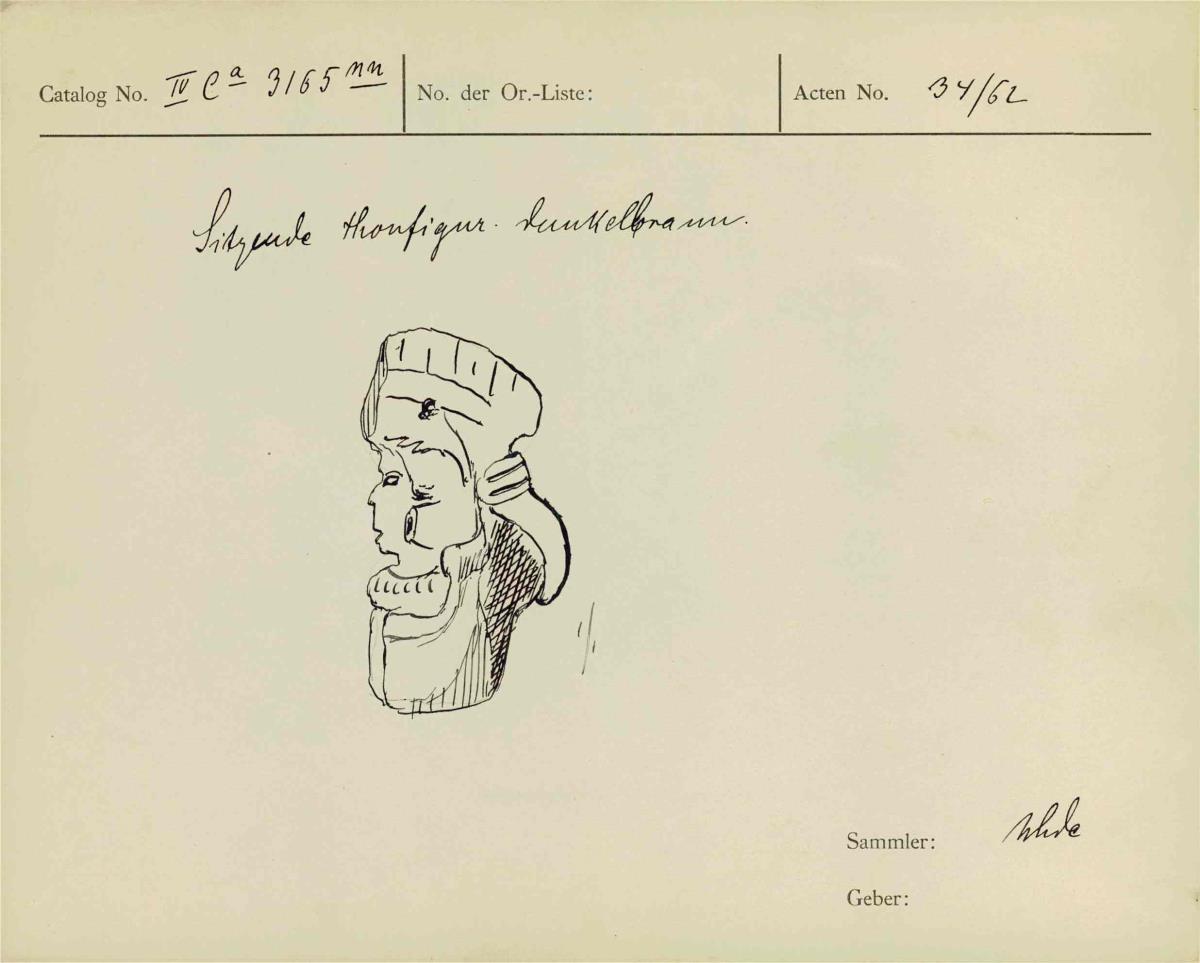 Catalog No. IV Ca 3165 nn No. der Or.-Liste: Acten No. 34/62
Sitzende Thonfigur. dunkelbraun.
1/1
Sammler: Uhde
Geber: